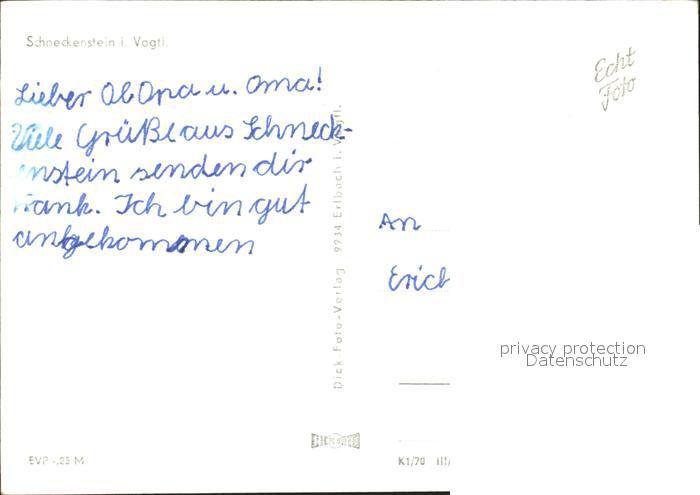 Schneckenstein i. Vogtl.
Echt
Foto
Lieber Opa u. Oma!
Viele Grüße aus Schneck-
enstein senden dir
Frank. Ich bin gut
angekommen
An
Erich
Dick Foto-Verlag 9934 Erlbach i. Vogtl.
privacy protection
Datenschutz
EVP -,25 M
K1/70 III/